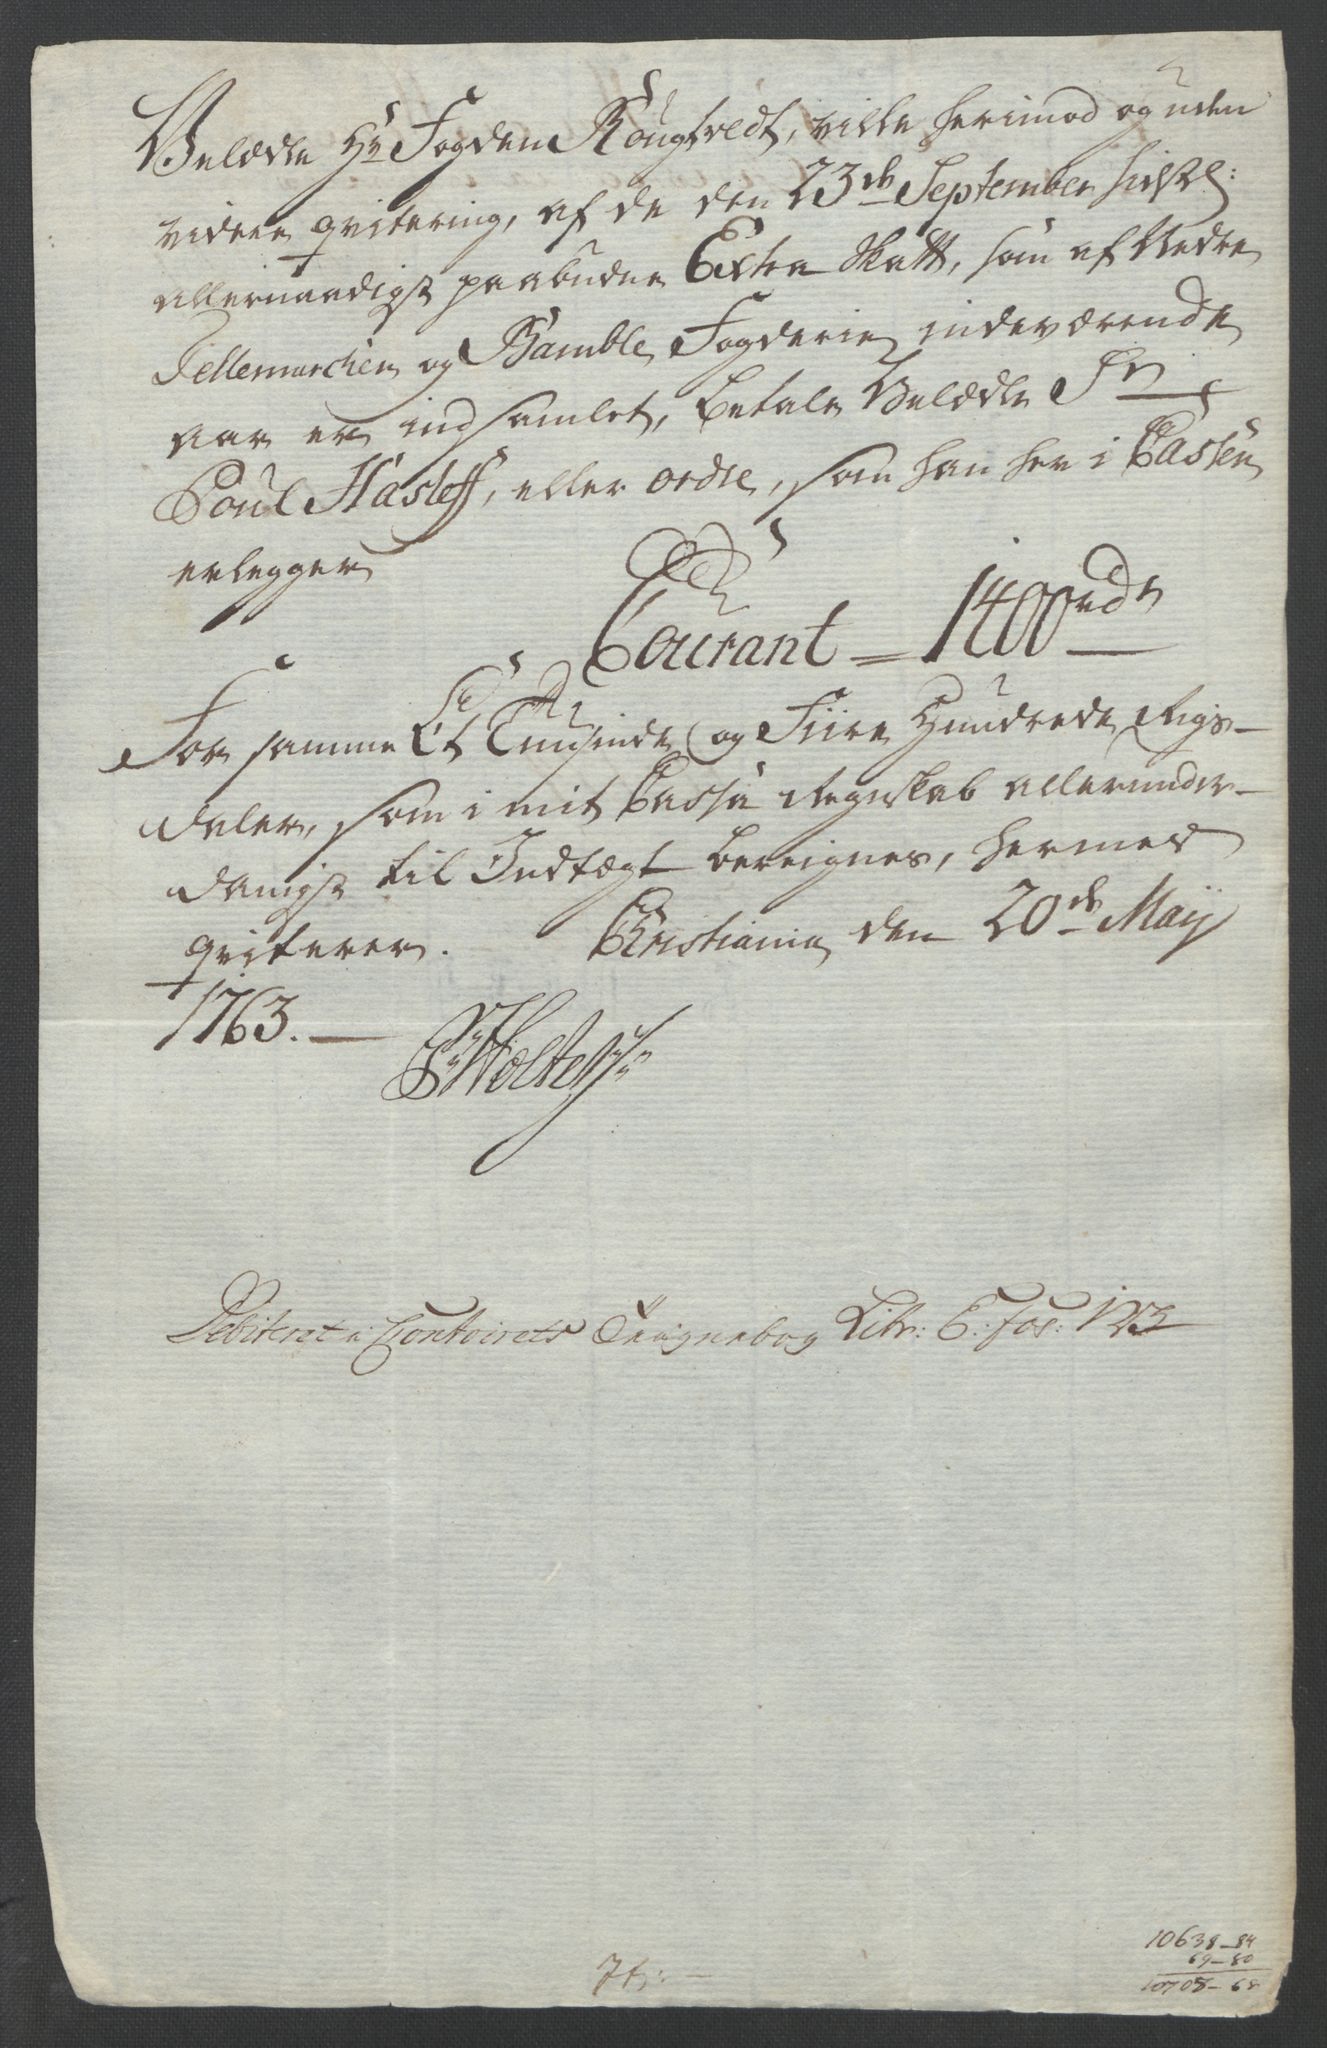 Velædle Hr Fogden Rougtvedt, ville herimod og uden
videre qvitering, af de den 23de September sidstl:
allernaadigst paabudne Extra Skatt, som af Nedre
Tellemarchen og Bamble Fogderie indeværende
aar er indsamlet, betale Velædle Sr
Poul Hasleff, eller ordre, som han her i Cassen
erlegger
Courant = 1400rdr
For samme Et Tuusinde og Fiire Hundrede Rigs-
daler, som i mit Cassa Regnskab allerunder-
danigst til Indtægt bereignes, hermed
qviterer. Christiania den 20de Maij
1763.
Holte
Debiteret i Contoirets Teignebog Litr: E: fol: 123
10638-84
69-80
10708-68